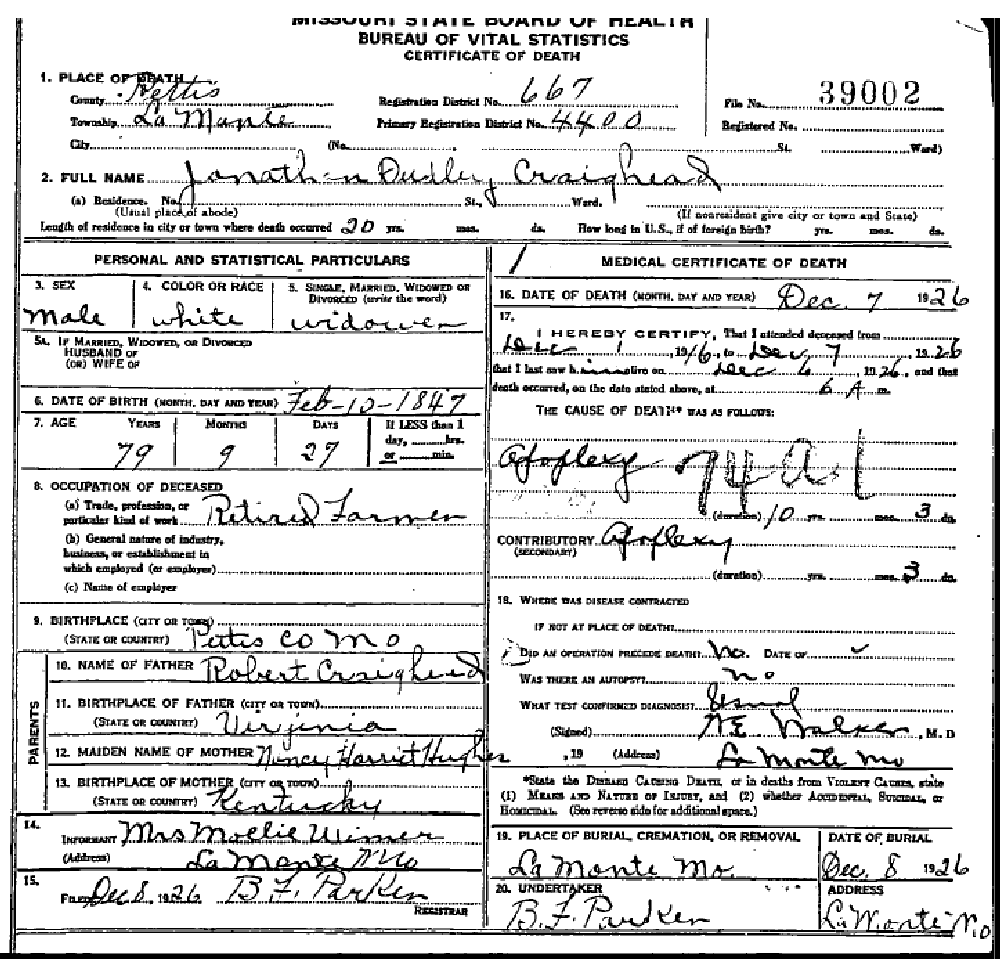 MISSOURI STATE BOARD OF HEALTH
BUREAU OF VITAL STATISTICS
CERTIFICATE OF DEATH
1. PLACE OF DEATH
County Pettis Registration District No. 667 File No. 39002
Township La Monte Primary Registration District No. 4400 Registered No.
City (No. St. Ward)
2. FULL NAME Jonathan Dudley Craighead
(a) Residence. No. St., Ward.
(Usual place of abode) (If nonresident give city or town and State)
Length of residence in city or town where death occurred 20 yrs. mos. ds. How long in U.S., if of foreign birth? yrs. mos. ds.
PERSONAL AND STATISTICAL PARTICULARS
3. SEX 4. COLOR OR RACE 5. SINGLE, MARRIED, WIDOWED OR
DIVORCED (write the word)
Male white widower
5A. IF MARRIED, WIDOWED, OR DIVORCED
HUSBAND OF
(OR) WIFE OF
6. DATE OF BIRTH (MONTH, DAY AND YEAR) Feb-10-1847
7. AGE YEARS MONTHS DAYS If LESS than 1
day, hrs.
or min.
79 9 27
8. OCCUPATION OF DECEASED
(a) Trade, profession, or
particular kind of work Retired Farmer
(b) General nature of industry,
business, or establishment in
which employed (or employer)
(c) Name of employer
9. BIRTHPLACE (CITY OR TOWN)
(STATE OR COUNTRY) Pettis Co Mo
PARENTS
10. NAME OF FATHER Robert Craighead
11. BIRTHPLACE OF FATHER (CITY OR TOWN)
(STATE OR COUNTRY) Virginia
12. MAIDEN NAME OF MOTHER Nancy Harriet Hughes
13. BIRTHPLACE OF MOTHER (CITY OR TOWN)
(STATE OR COUNTRY) Kentucky
14.
INFORMANT Mrs Mollie Wimer
(Address) La Monte Mo
15.
FILED Dec 8 1926 B.F. Parker
REGISTRAR
1 MEDICAL CERTIFICATE OF DEATH
16. DATE OF DEATH (MONTH, DAY AND YEAR) Dec. 7 1926
17.
I HEREBY CERTIFY, That I attended deceased from
Dec 1, 1916, to Dec 7, 1926
that I last saw h alive on Dec 6, 1926, and that
death occurred, on the date stated above, at 6 A m.
THE CAUSE OF DEATH* WAS AS FOLLOWS:
Apoplexy 74a1
(duration) 10 yrs. mos. 3 ds.
CONTRIBUTORY Apoplexy
(SECONDARY)
(duration) yrs. mos. 3 ds.
18. WHERE WAS DISEASE CONTRACTED
IF NOT AT PLACE OF DEATH?
DID AN OPERATION PRECEDE DEATH? No. DATE OF
WAS THERE AN AUTOPSY? no
WHAT TEST CONFIRMED DIAGNOSIS? Usual
(Signed) W.E. Walker, M. D
, 19 (Address) La Monte Mo
*State the DISEASE CAUSING DEATH, or in deaths from VIOLENT CAUSES, state
(1) MEANS AND NATURE OF INJURY, and (2) whether ACCIDENTAL, SUICIDAL, or
HOMICIDAL. (See reverse side for additional space.)
19. PLACE OF BURIAL, CREMATION, OR REMOVAL DATE OF BURIAL
La Monte Mo. Dec. 8 1926
20. UNDERTAKER ADDRESS
B.F. Parker La Monte Mo